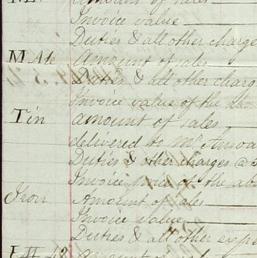 Amount of sales
Invoice value
Duties & all other charge
M Ate Amount of sales
Duties & all other charg
Invoice value of the
Tin amount of sales
delivered to Mr
Duties & other charges @
Invoice price of the
Iron Amount of sales
Invoice Value
Duties & all other expe
Amount of sales